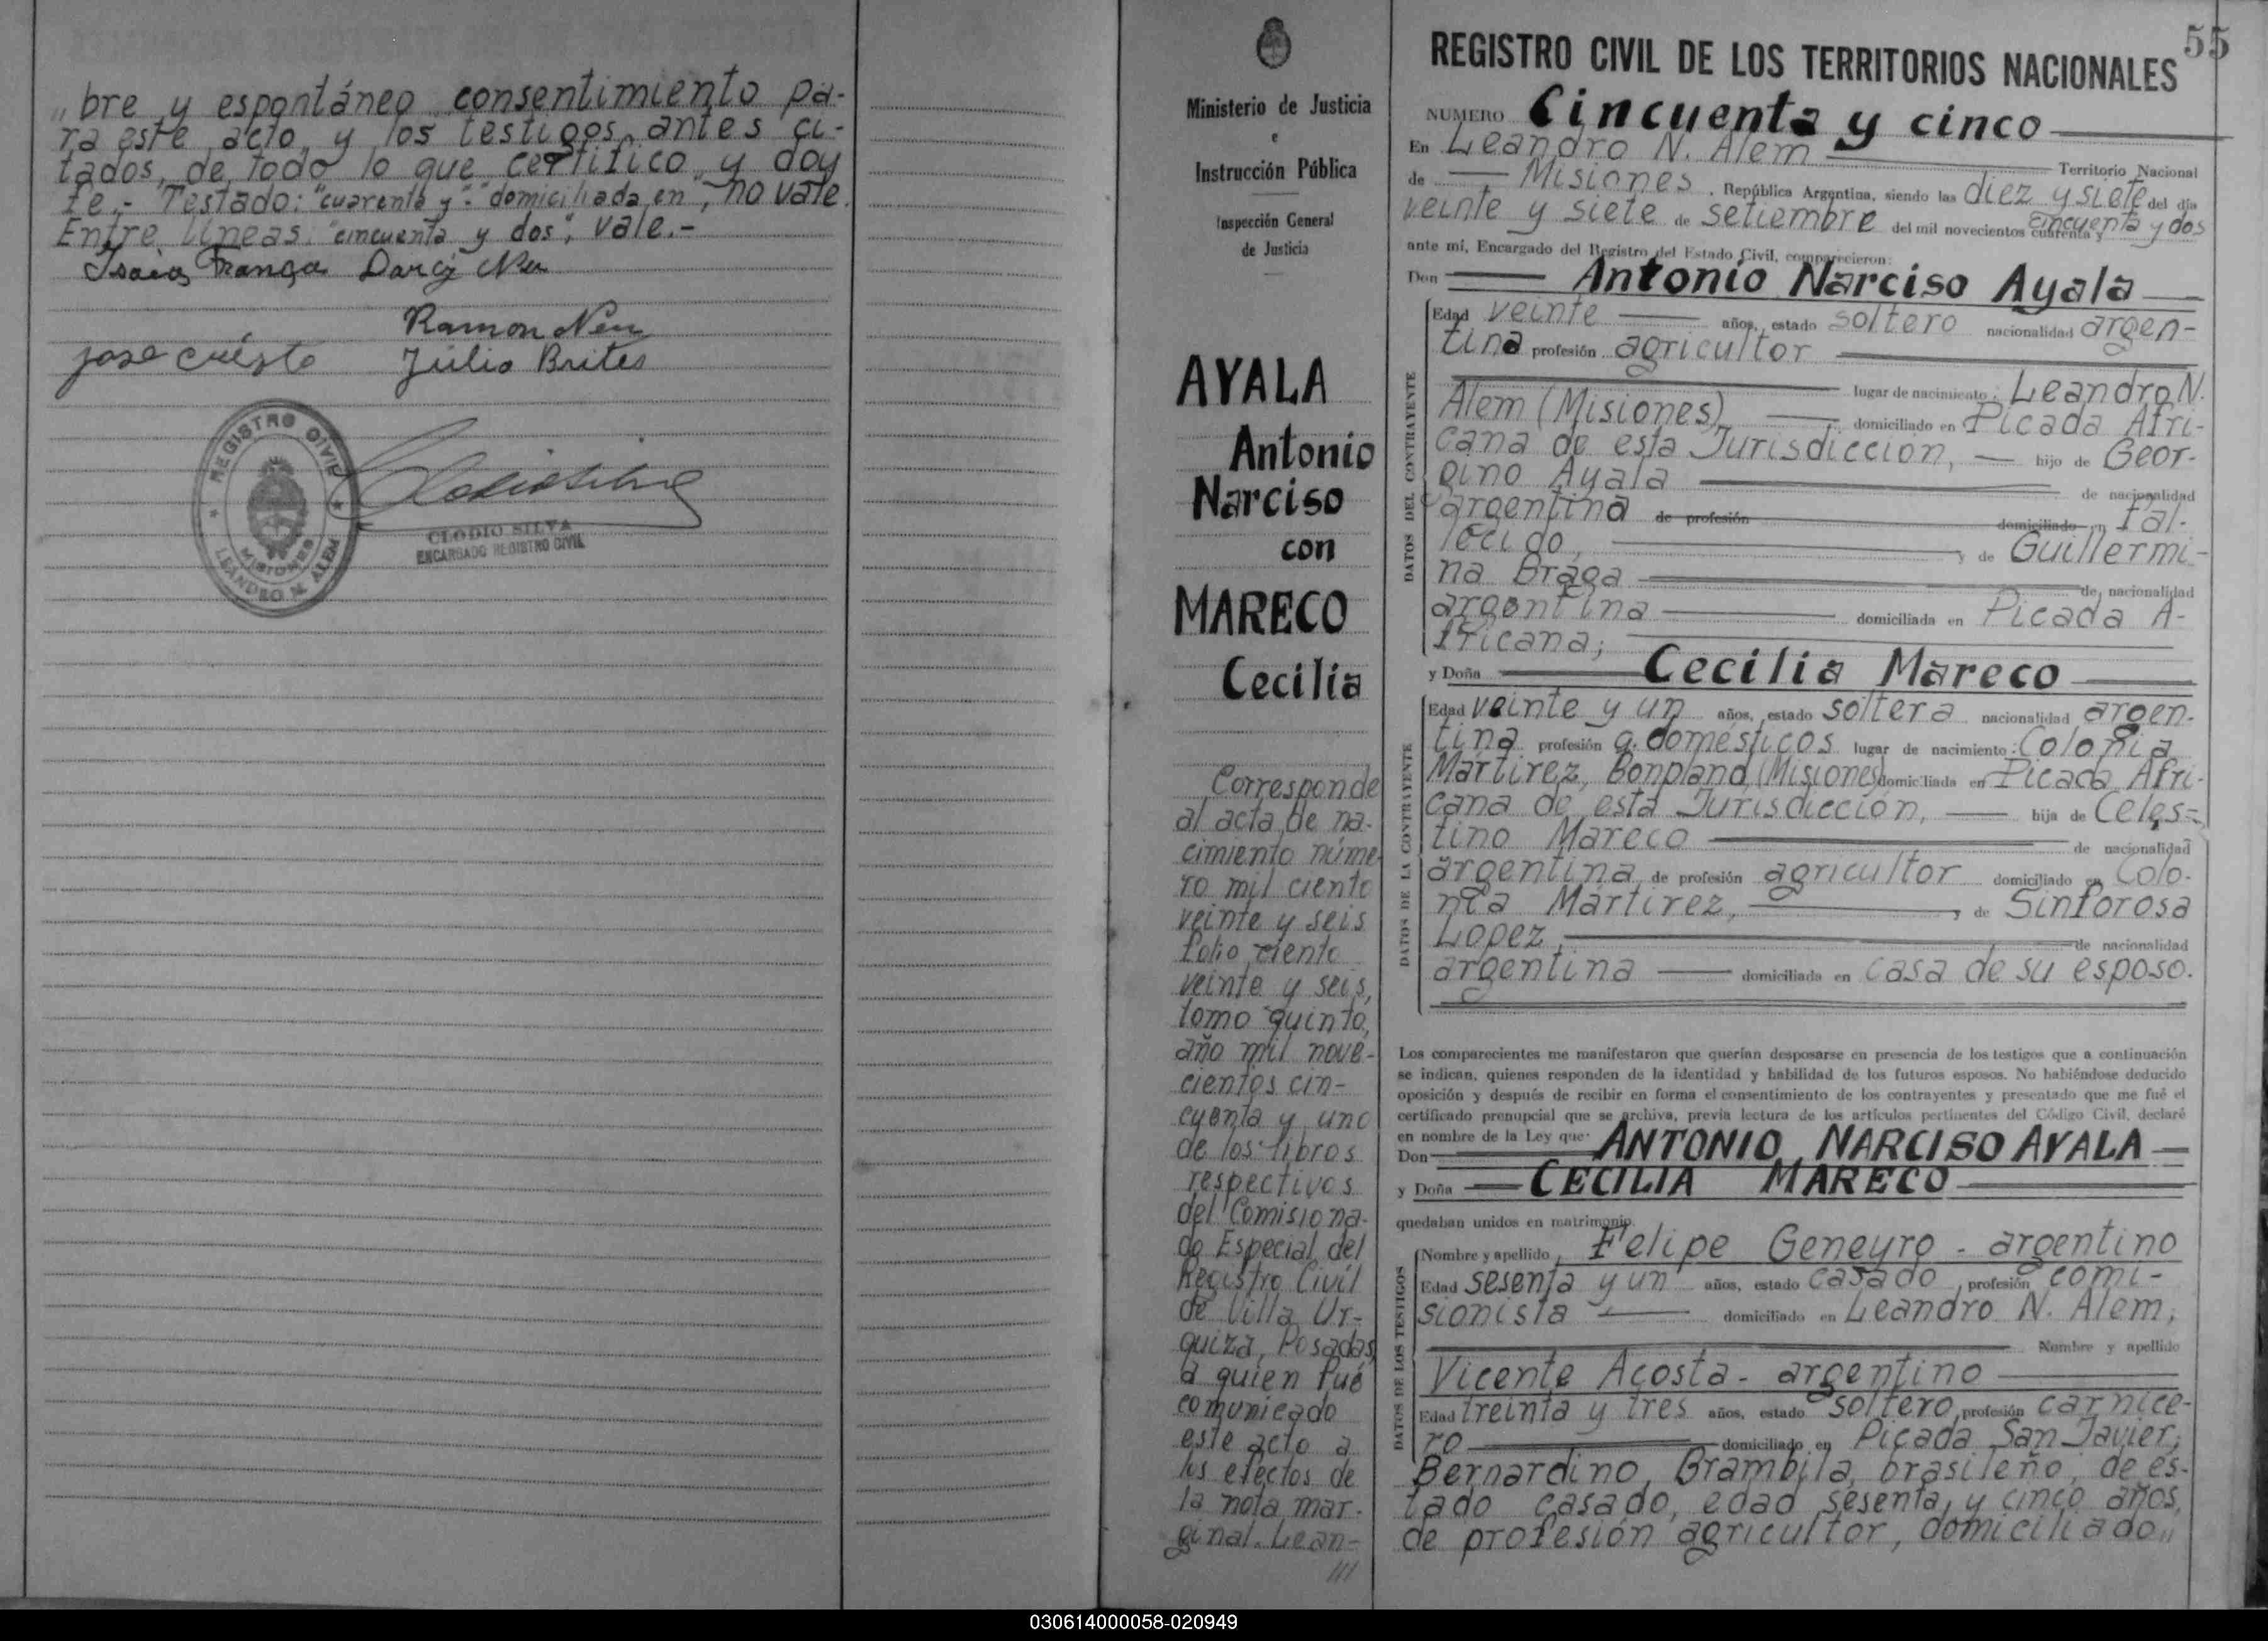 „bre y espontáneo consentimiento pa-
ra este acto y los testigos antes ci-
tados, de todo lo que certifico y doy
fe.- Testado: "cuarenta y"-"domiciliada en", no vale.
Entre líneas: "cincuenta y dos", vale.-
Isaias Franga Darcy Neu
Ramon Neu
jose cuésto Julio Brites
REGISTRO CIVIL
MISIONES
LEANDRO N. ALEM
CLODIO SILVA
ENCARGADO REGISTRO CIVIL
Ministerio de Justicia
e
Instrucción Pública
Inspección General
de Justicia
AYALA
Antonio
Narciso
con
MARECO
Cecilia
Corresponde
al acta de na-
cimiento núme-
ro mil ciento
veinte y seis
folio ciento
veinte y seis,
tomo quinto,
año mil nove-
cientos cin-
cuenta y uno
de los libros
respectivos
del Comisiona-
do Especial del
Registro Civil
de Villa Ur-
quiza, Posadas,
a quien fué
comunicado
este acto a
los efectos de
la nota mar-
ginal. Lean-
///
55
REGISTRO CIVIL DE LOS TERRITORIOS NACIONALES
NUMERO Cincuenta y cinco
En Leandro N. Alem Territorio Nacional
de Misiones, República Argentina, siendo las diez y siete del día
veinte y siete de setiembre del mil novecientos cuarenta y cincuenta y dos
ante mí, Encargado del Registro del Estado Civil, comparecieron:
Don Antonio Narciso Ayala
DATOS DEL CONTRAYENTE
Edad veinte años, estado soltero nacionalidad argen-
tina profesión agricultor
lugar de nacimiento: Leandro N.
Alem (Misiones), domiciliado en Picada Afri-
cana de esta Jurisdicción, hijo de Geor-
gino Ayala de nacionalidad
argentina de profesión domiciliado en fal-
lecido, y de Guillermi-
na Braga de nacionalidad
argentina domiciliada en Picada A-
fricana;
y Doña Cecilia Mareco
DATOS DE LA CONTRAYENTE
Edad veinte y un años, estado soltera nacionalidad argen-
tina profesión q. domésticos lugar de nacimiento: Colonia
Martirez, Bonpland (Misiones) domiciliada en Picada Afri-
cana de esta Jurisdicción, hija de Celes-
tino Mareco de nacionalidad
argentina de profesión agricultor domiciliado en Colo-
nia Mártirez, y de Sinforosa
Lopez, de nacionalidad
argentina domiciliada en casa de su esposo.
Los comparecientes me manifestaron que querían desposarse en presencia de los testigos que a continuación
se indican, quienes responden de la identidad y habilidad de los futuros esposos. No habiéndose deducido
oposición y después de recibir en forma el consentimiento de los contrayentes y presentado que me fué el
certificado prenupcial que se archiva, previa lectura de los artículos pertinentes del Código Civil, declaré
en nombre de la Ley que:
Don ANTONIO NARCISO AYALA
y Doña CECILIA MARECO
quedaban unidos en matrimonio.
DATOS DE LOS TESTIGOS
Nombre y apellido, Felipe Geneyro - argentino
Edad sesenta y un años, estado casado, profesión comi-
sionista domiciliado en Leandro N. Alem;
Nombre y apellido
Vicente Acosta - argentino
Edad treinta y tres años, estado soltero, profesión carnice-
ro domiciliado en Picada San Javier;
Bernardino Brambila, brasileño, de es-
tado casado, edad sesenta y cinco años,
de profesión agricultor, domiciliado„
030614000058-020949